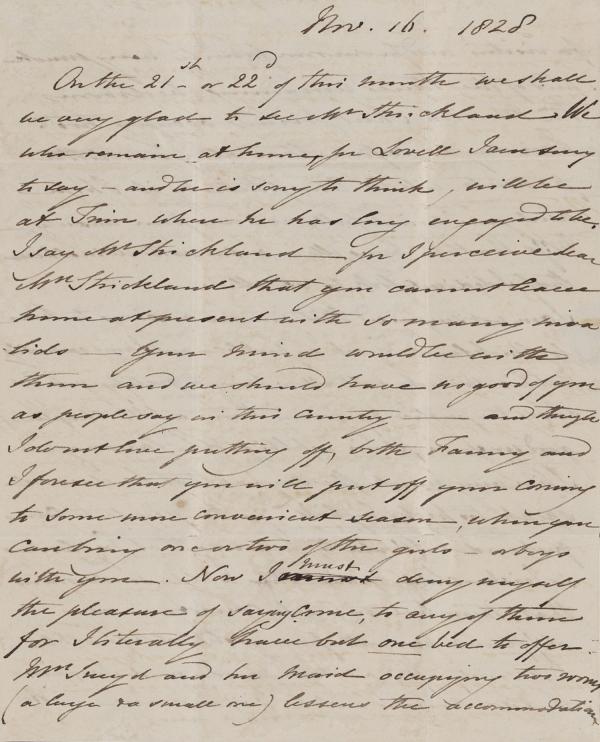 Nov. 16. 1828
On the 21st or 22d of this month we shall
be very glad to see Mr Strickland. We
who remain at home, for Lovell I am sorry
to say – and he is sorry to think, will be
at Trim where he has long engaged to be.
I say Mr Strickland – for I perceive dear
Mrs Strickland that you cannot leave
home at present with so many inva
lids – Your mind would be with
them and we should have no good of you
as people say in this country – and though
I do not love putting off, both Fanny and
I foresee that you will put off your coming
to some more convenient season, when you
can bring one or two of the girls – or boys
with you. Now I must deny myself
the pleasure of saying Come, to any of them
for I literally have but one bed to offer.
Mrs Sneyd and her maid occupying two rooms
(a large & a small one) lessens the accommodation